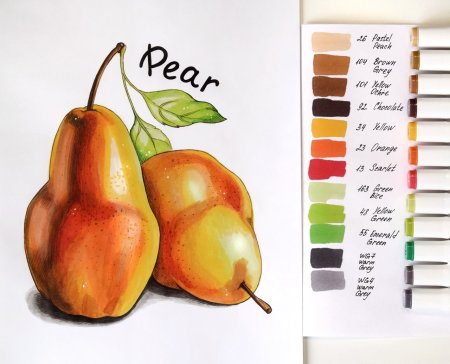 Pear
26 Pastel
Peach
104 Brown
Grey
101 Yellow
Ochre
92 Chocolate
34 Yellow
23 Orange
13 Scarlet
163 Green
Bice
48 Yellow
Green
55 Emerald
Green
WG7
Warm
Grey
WG4
Warm
Grey